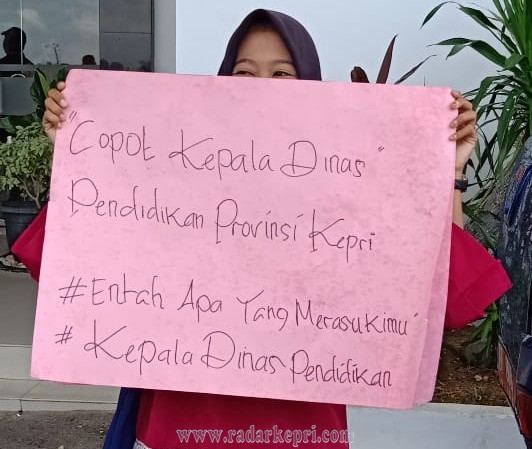 "Copot Kepala Dinas"
Pendidikan Provinsi Kepri
#Entah Apa Yang Merasukimu
# Kepala Dinas Pendidikan
www.radarkepri.com